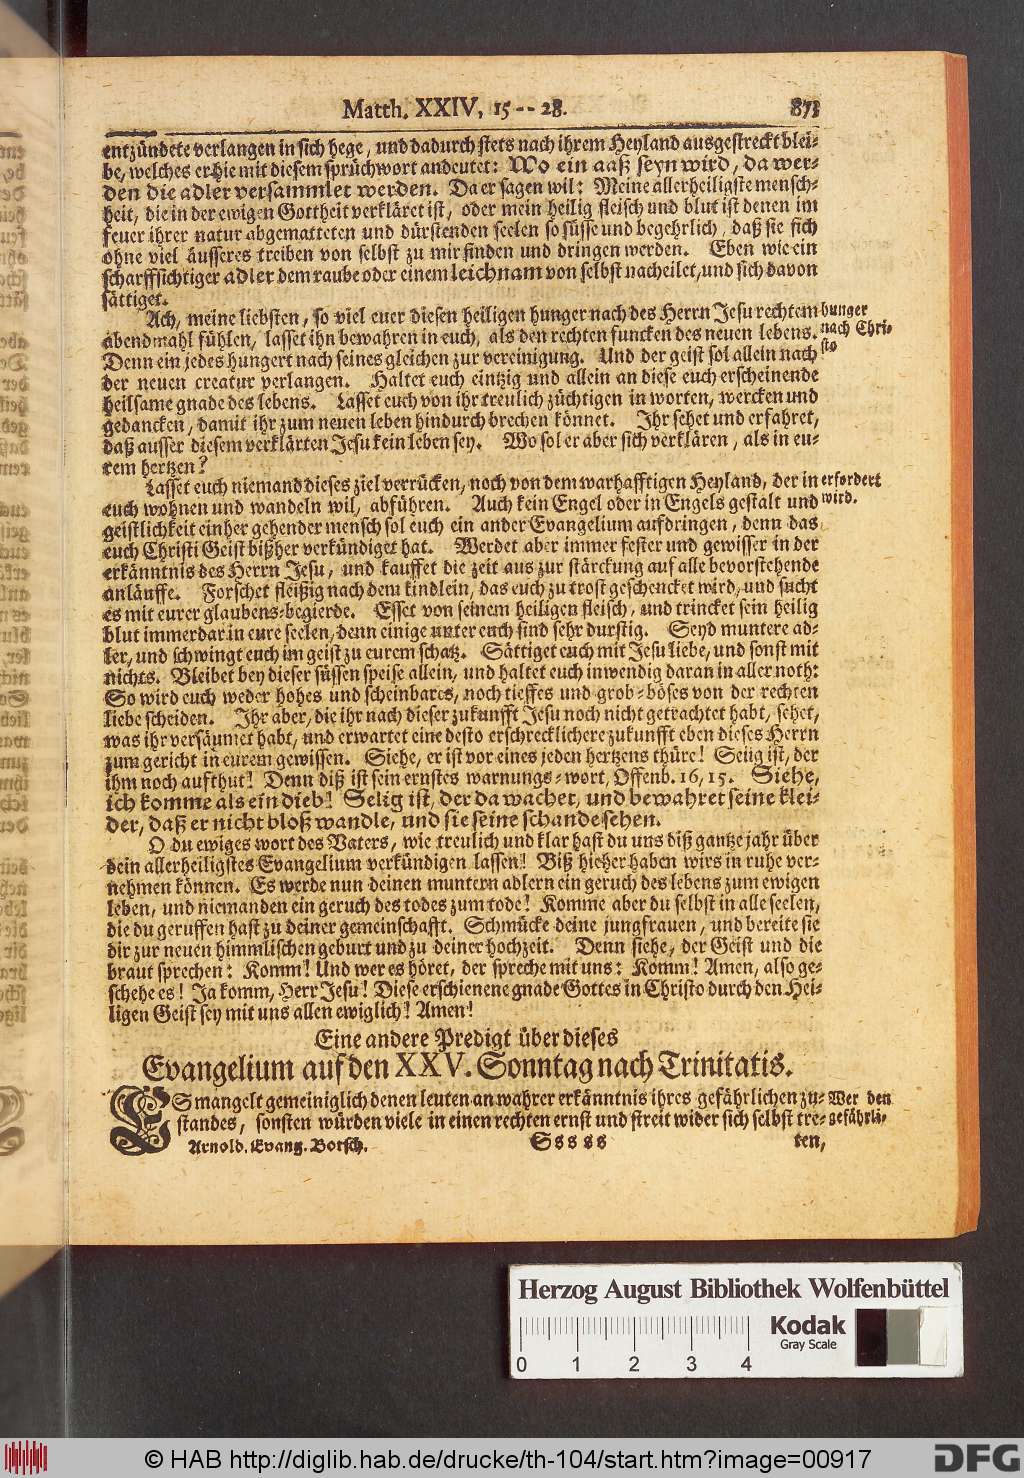 Matth. XXIV, 15 -- 28. 873
entzündete verlangen in sich hege, und dadurch stets nach ihrem Heyland ausgestreckt blei-
be, welches er hie mit diesem sprüchwort andeutet: Wo ein aaß seyn wird, da wer-
den die adler versammlet werden. Da er sagen wil: Meine allerheiligste mensch-
heit, die in der ewigen Gottheit verkläret ist, oder mein heilig fleisch und blut ist denen im
feuer ihrer natur abgematteten und dürstenden seelen so süsse und begehrlich, daß sie sich
ohne viel äusseres treiben von selbst zu mir finden und dringen werden. Eben wie ein
scharffsichtiger adler dem raube oder einem leichnam von selbst nacheilet, und sich davon
sättiget.
Ach, meine liebsten, so viel euer diesen heiligen hunger nach des Herrn Jesu rechtem hunger
abendmahl fühlen, lasset ihn bewahren in euch, als den rechten funcken des neuen lebens. nach Chri-
Denn ein jedes hungert nach seines gleichen zur vereinigung. Und der geist sol allein nach sto
der neuen creatur verlangen. Haltet euch eintzig und allein an diese euch erscheinende
heilsame gnade des lebens. Lasset euch von ihr treulich züchtigen in worten, wercken und
gedancken, damit ihr zum neuen leben hindurch brechen könnet. Ihr sehet und erfahret,
daß ausser diesem verklärten Jesu kein leben sey. Wo sol er aber sich verklären, als in eu-
rem hertzen?
Lasset euch niemand dieses ziel verrücken, noch von dem warhafftigen Heyland, der in erfordert
euch wohnen und wandeln wil, abführen. Auch kein Engel oder in Engels gestalt und wird.
geistlichkeit einher gehender mensch sol euch ein ander Evangelium aufdringen, denn das
euch Christi Geist bißher verkündiget hat. Werdet aber immer fester und gewisser in der
erkänntnis des Herrn Jesu, und kauffet die zeit aus zur stärckung auf alle bevorstehende
anläuffe. Forschet fleißig nach dem kindlein, das euch zu trost geschencket wird, und sucht
es mit eurer glaubens-begierde. Esset von seinem heiligen fleisch, und trincket sein heilig
blut immerdar in eure seelen, denn einige unter euch sind sehr durstig. Seyd muntere ad-
ler, und schwingt euch im geist zu eurem schatz. Sättiget euch mit Jesu liebe, und sonst mit
nichts. Bleibet bey dieser süssen speise allein, und haltet euch inwendig daran in aller noth:
So wird euch weder hohes und scheinbares, noch tieffes und grob-böses von der rechten
liebe scheiden. Ihr aber, die ihr nach dieser zukunfft Jesu noch nicht getrachtet habt, sehet,
was ihr versäumet habt, und erwartet eine desto erschrecklichere zukunfft eben dieses Herrn
zum gericht in eurem gewissen. Siehe, er ist vor eines jeden hertzens thüre! Selig ist, der
ihm noch aufthut! Denn diß ist sein ernstes warnungs-wort, Offenb. 16, 15. Siehe,
ich komme als ein dieb! Selig ist, der da wachet, und bewahret seine klei-
der, daß er nicht bloß wandle, und sie seine schande sehen.
O du ewiges wort des Vaters, wie treulich und klar hast du uns diß gantze jahr über
dein allerheiligstes Evangelium verkündigen lassen! Biß hieher haben wirs in ruhe ver-
nehmen können. Es werde nun deinen muntern adlern ein geruch des lebens zum ewigen
leben, und niemanden ein geruch des todes zum tode! Komme aber du selbst in alle seelen,
die du geruffen hast zu deiner gemeinschafft. Schmücke deine jungfrauen, und bereite sie
dir zur neuen himmlischen geburt und zu deiner hochzeit. Denn siehe, der Geist und die
braut sprechen: Komm! Und wer es höret, der spreche mit uns: Komm! Amen, also ge-
schehe es! Ja komm, Herr Jesu! Diese erschienene gnade Gottes in Christo durch den Hei-
ligen Geist sey mit uns allen ewiglich! Amen!
Eine andere Predigt über dieses
Evangelium auf den XXV. Sonntag nach Trinitatis.
ES mangelt gemeiniglich denen leuten an wahrer erkänntnis ihres gefährlichen zu- Wer den
standes, sonsten würden viele in einen rechten ernst und streit wider sich selbst tre- gefährli-
Arnold. Evang. Botsch. Sssss ten,
Herzog August Bibliothek Wolfenbüttel
Kodak
Gray Scale
0 1 2 3 4
© HAB http://diglib.hab.de/drucke/th-104/start.htm?image=00917
DFG